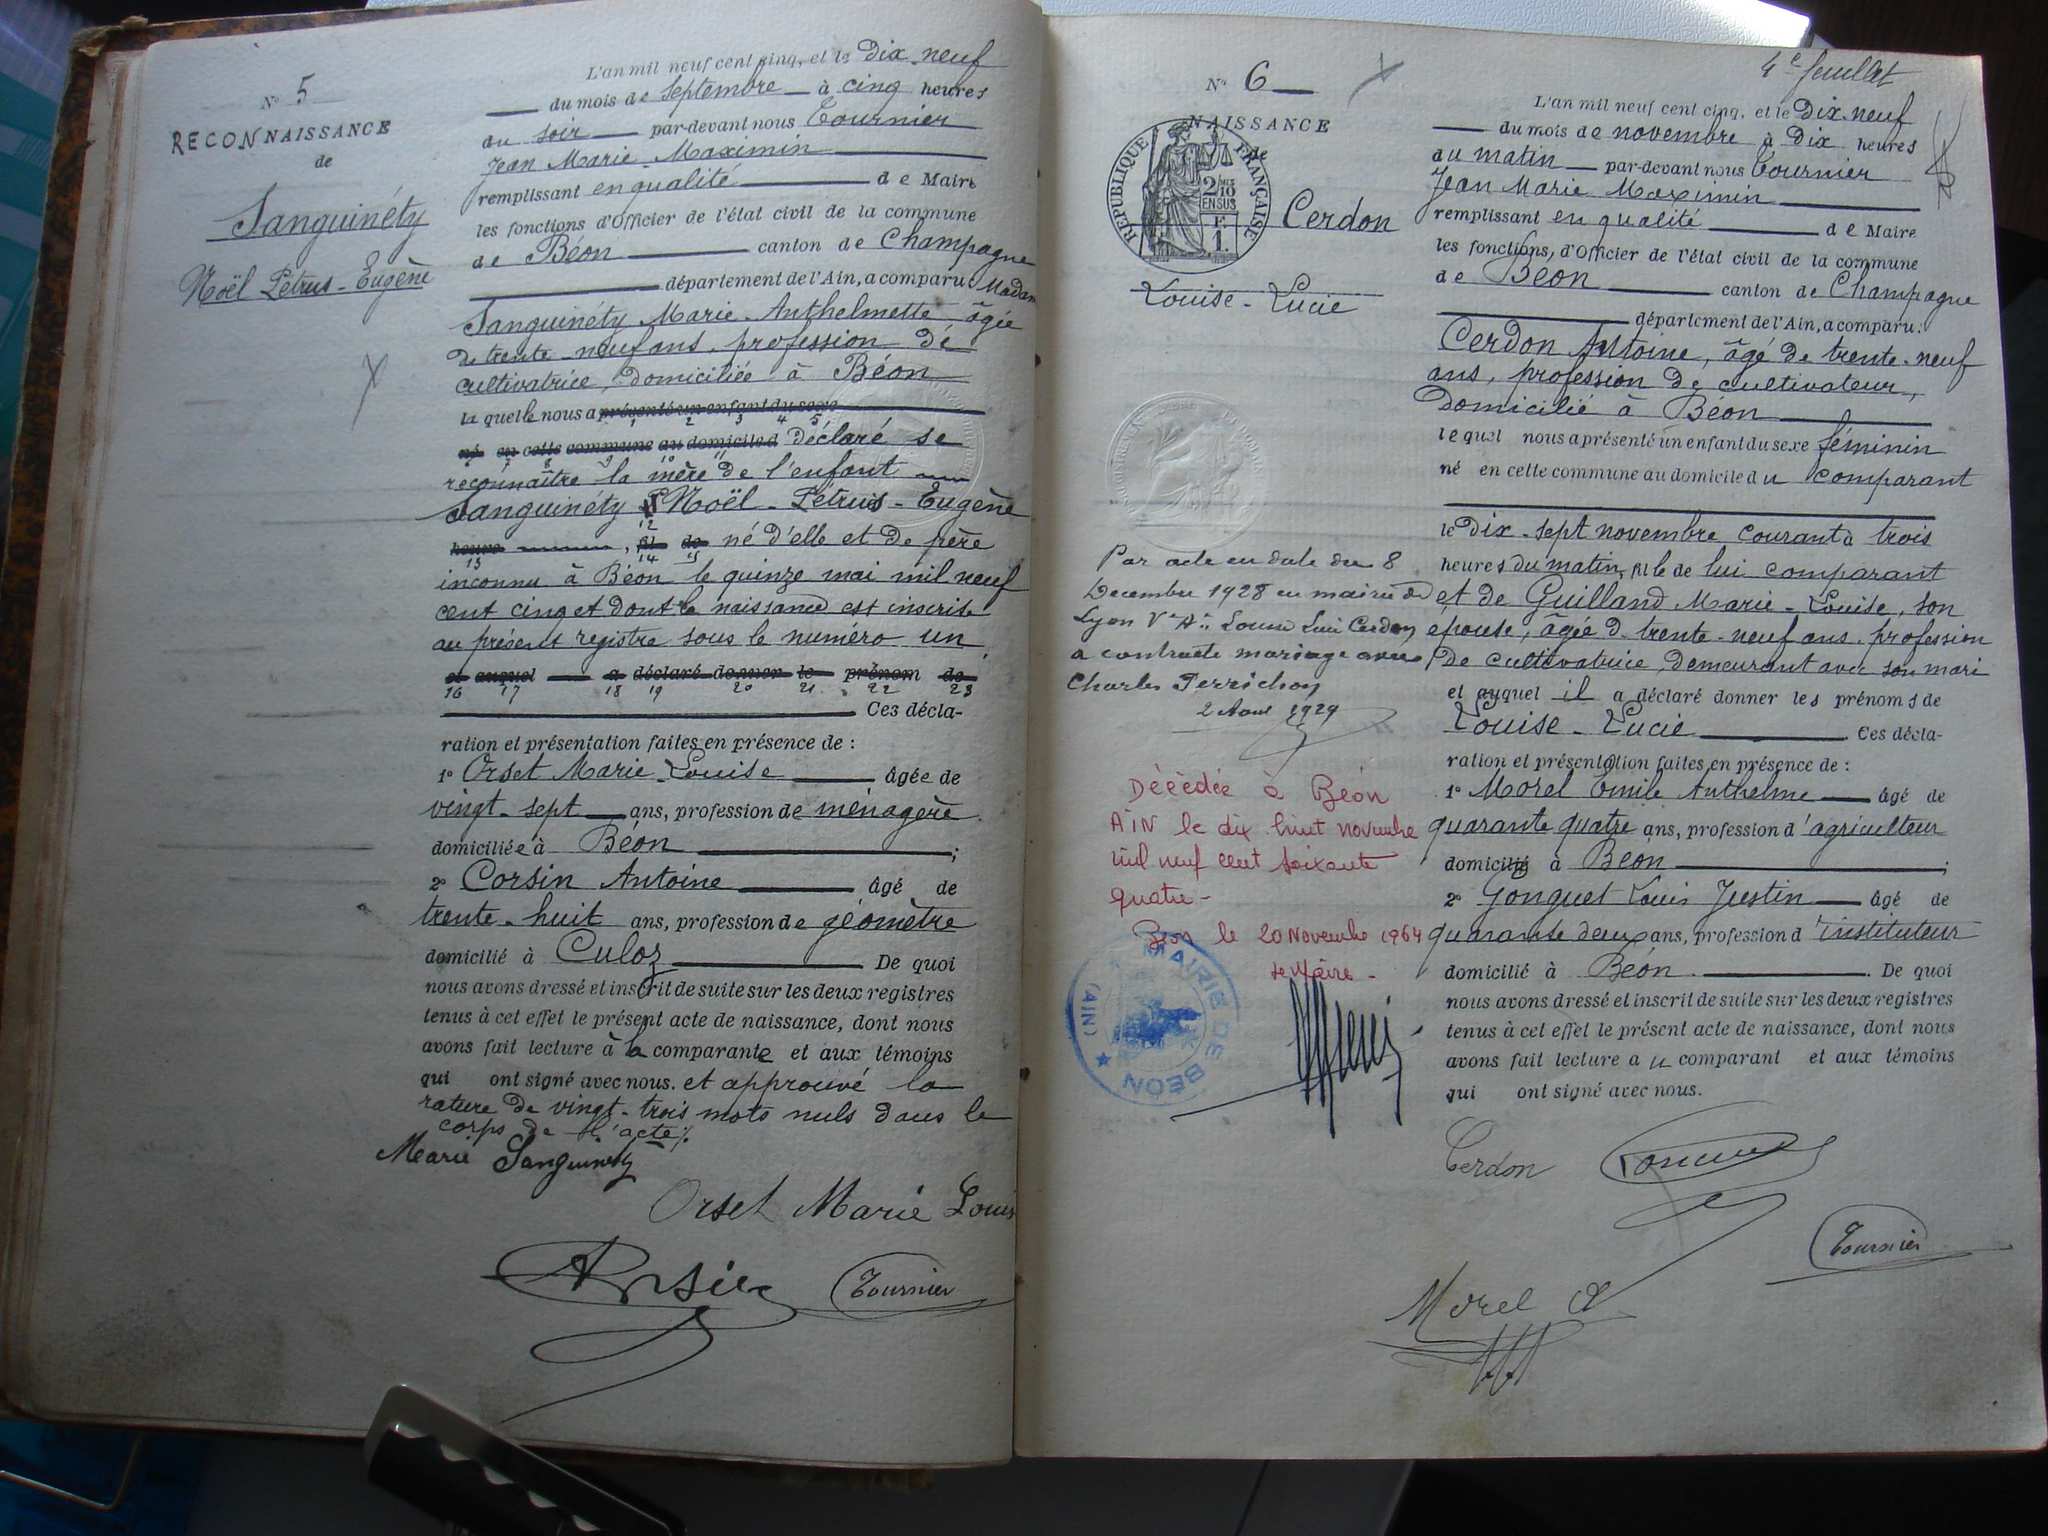 N° 5
RECONNAISSANCE
de
Sanguinéty
Noël Pétrus-Eugène
L'an mil neuf cent cinq, et le Dix neuf
du mois de septembre à cinq heures
du soir par-devant nous Tournier
Jean Marie Maximin
remplissant en qualité de Maire
les fonctions d'Officier de l'état civil de la commune
de Béon canton de Champagne
département de l'Ain, a comparu Madame
Sanguinéty Marie-Anthelmette âgée
de trente-neuf ans, profession de
cultivatrice domiciliée à Béon
la quelle nous a présenté un enfant du sexe
1 2 3 4 5
né en cette commune au domicile d déclaré se
7 8 9 10 11
reconnaître la mère de l'enfant
Sanguinéty Noël-Pétrus-Eugène
12
heure , fil de né d'elle et de père
13 14 15
inconnu à Béon le quinze mai mil neuf
cent cinq et dont la naissance est inscrite
au présent registre sous le numéro un
et auquel a déclaré donner le prénom de
16 17 18 19 20 21 22 23
Ces décla-
ration et présentation faites en présence de :
1° Orset Marie-Louise âgée de
vingt-sept ans, profession de ménagère
domiciliée à Béon ;
2° Corsin Antoine âgé de
trente-huit ans, profession de géomètre
domicilié à Culoz De quoi
nous avons dressé et inscrit de suite sur les deux registres
tenus à cet effet le présent acte de naissance, dont nous
avons fait lecture à la comparante et aux témoins
qui ont signé avec nous. et approuvé la
rature de vingt-trois mots nuls dans le
corps de l'acte
Marie Sanguinéty
Orset Marie Louis
Tournier
4e feuillet
N° 6
NAISSANCE
de
RÉPUBLIQUE FRANÇAISE
2/10
EN SUS
F.
1.
Cerdon
Louise-Lucie
Par acte en date du 8
Décembre 1928 en mairie de
Lyon Cerdon
a contracté mariage avec
Charles Perrichon
2 Aout 1929
Décédée à Béon
AIN le dix huit novembre
mil neuf cent soixante
quatre-
Béon le 20 Novembre 1964
le Maire-
MAIRIE DE BÉON
(AIN)
L'an mil neuf cent cinq, et le Dix-neuf
du mois de novembre à Dix heures
du matin par-devant nous Tournier
Jean Marie Maximin
remplissant en qualité de Maire
les fonctions, d'Officier de l'état civil de la commune
de Béon canton de Champagne
département de l'Ain, a comparu:
Cerdon Antoine, âgé de trente-neuf
ans, profession de cultivateur,
Domicilié à Béon
lequel nous a présenté un enfant du sexe féminin
né en cette commune au domicile du comparant
le Dix-sept novembre courant à trois
heures du matin, fille de lui comparant
et de Guilland Marie-Louise, son
épouse, âgée de trente-neuf ans, profession
de cultivatrice, demeurant avec son mari
et auquel il a déclaré donner les prénoms de
Louise-Lucie Ces décla-
ration et présentation faites en présence de :
1° Morel Emile Anthelme âgé de
quarante quatre ans, profession d'agriculteur
domicilié à Béon ;
2° Gonguet Louis Justin âgé de
quarante deux ans, profession d'instituteur
domicilié à Béon. De quoi
nous avons dressé et inscrit de suite sur les deux registres
tenus à cet effet le présent acte de naissance, dont nous
avons fait lecture au comparant et aux témoins
qui ont signé avec nous.
Cerdon
Tournier
Morel